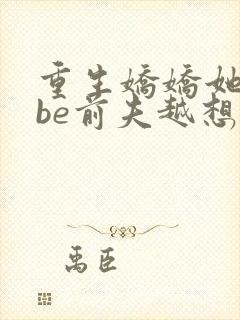 重生嬌嬌她
be前夫越想
禹臣